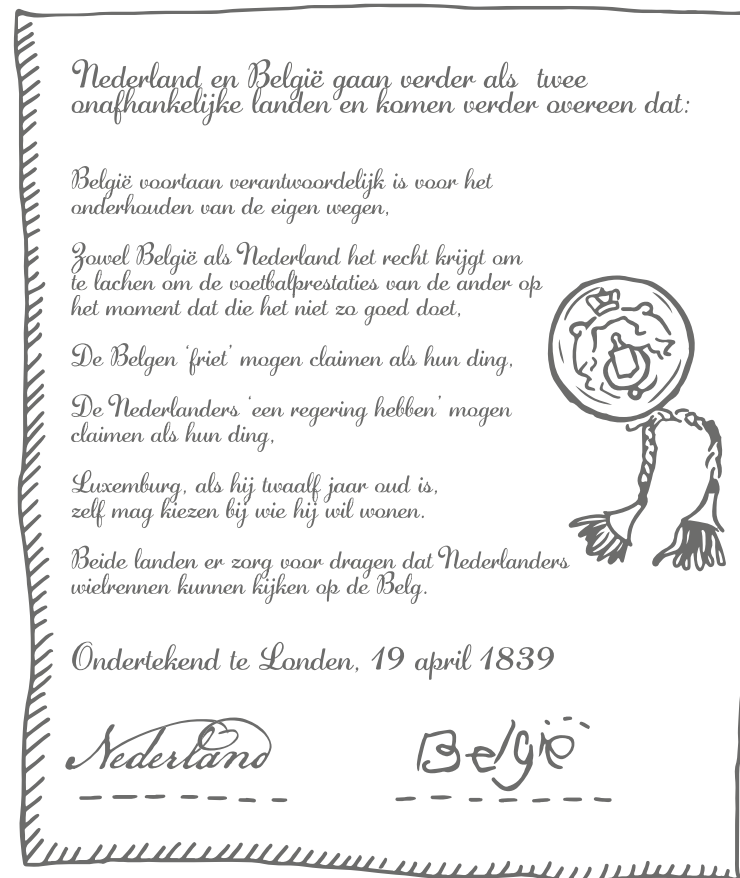 Nederland en België gaan verder als twee
onafhankelijke landen en komen verder overeen dat:
België voortaan verantwoordelijk is voor het
onderhouden van de eigen wegen,
Zowel België als Nederland het recht krijgt om
te lachen om de voetbalprestaties van de ander op
het moment dat die het niet zo goed doet,
De Belgen 'friet' mogen claimen als hun ding,
De Nederlanders 'een regering hebben' mogen
claimen als hun ding,
Luxemburg, als hij twaalf jaar oud is,
zelf mag kiezen bij wie hij wil wonen.
Beide landen er zorg voor dragen dat Nederlanders
wielrennen kunnen kijken op de Belg.
Ondertekend te Londen, 19 april 1839
Nederland België